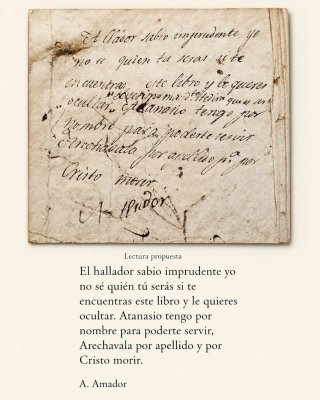 Hallador sabio imprudente yo
no se quien tu seras si te
encuentras este libro y le queres
ocultar. Atanasio tengo por
nombre para poderte servir
Arechavala por apellido p.ª por
Cristo morir.
A
Lectura propuesta
El hallador sabio imprudente yo
no sé quién tú serás si te
encuentras este libro y le quieres
ocultar. Atanasio tengo por
nombre para poderte servir,
Arechavala por apellido y por
Cristo morir.
A. Amador